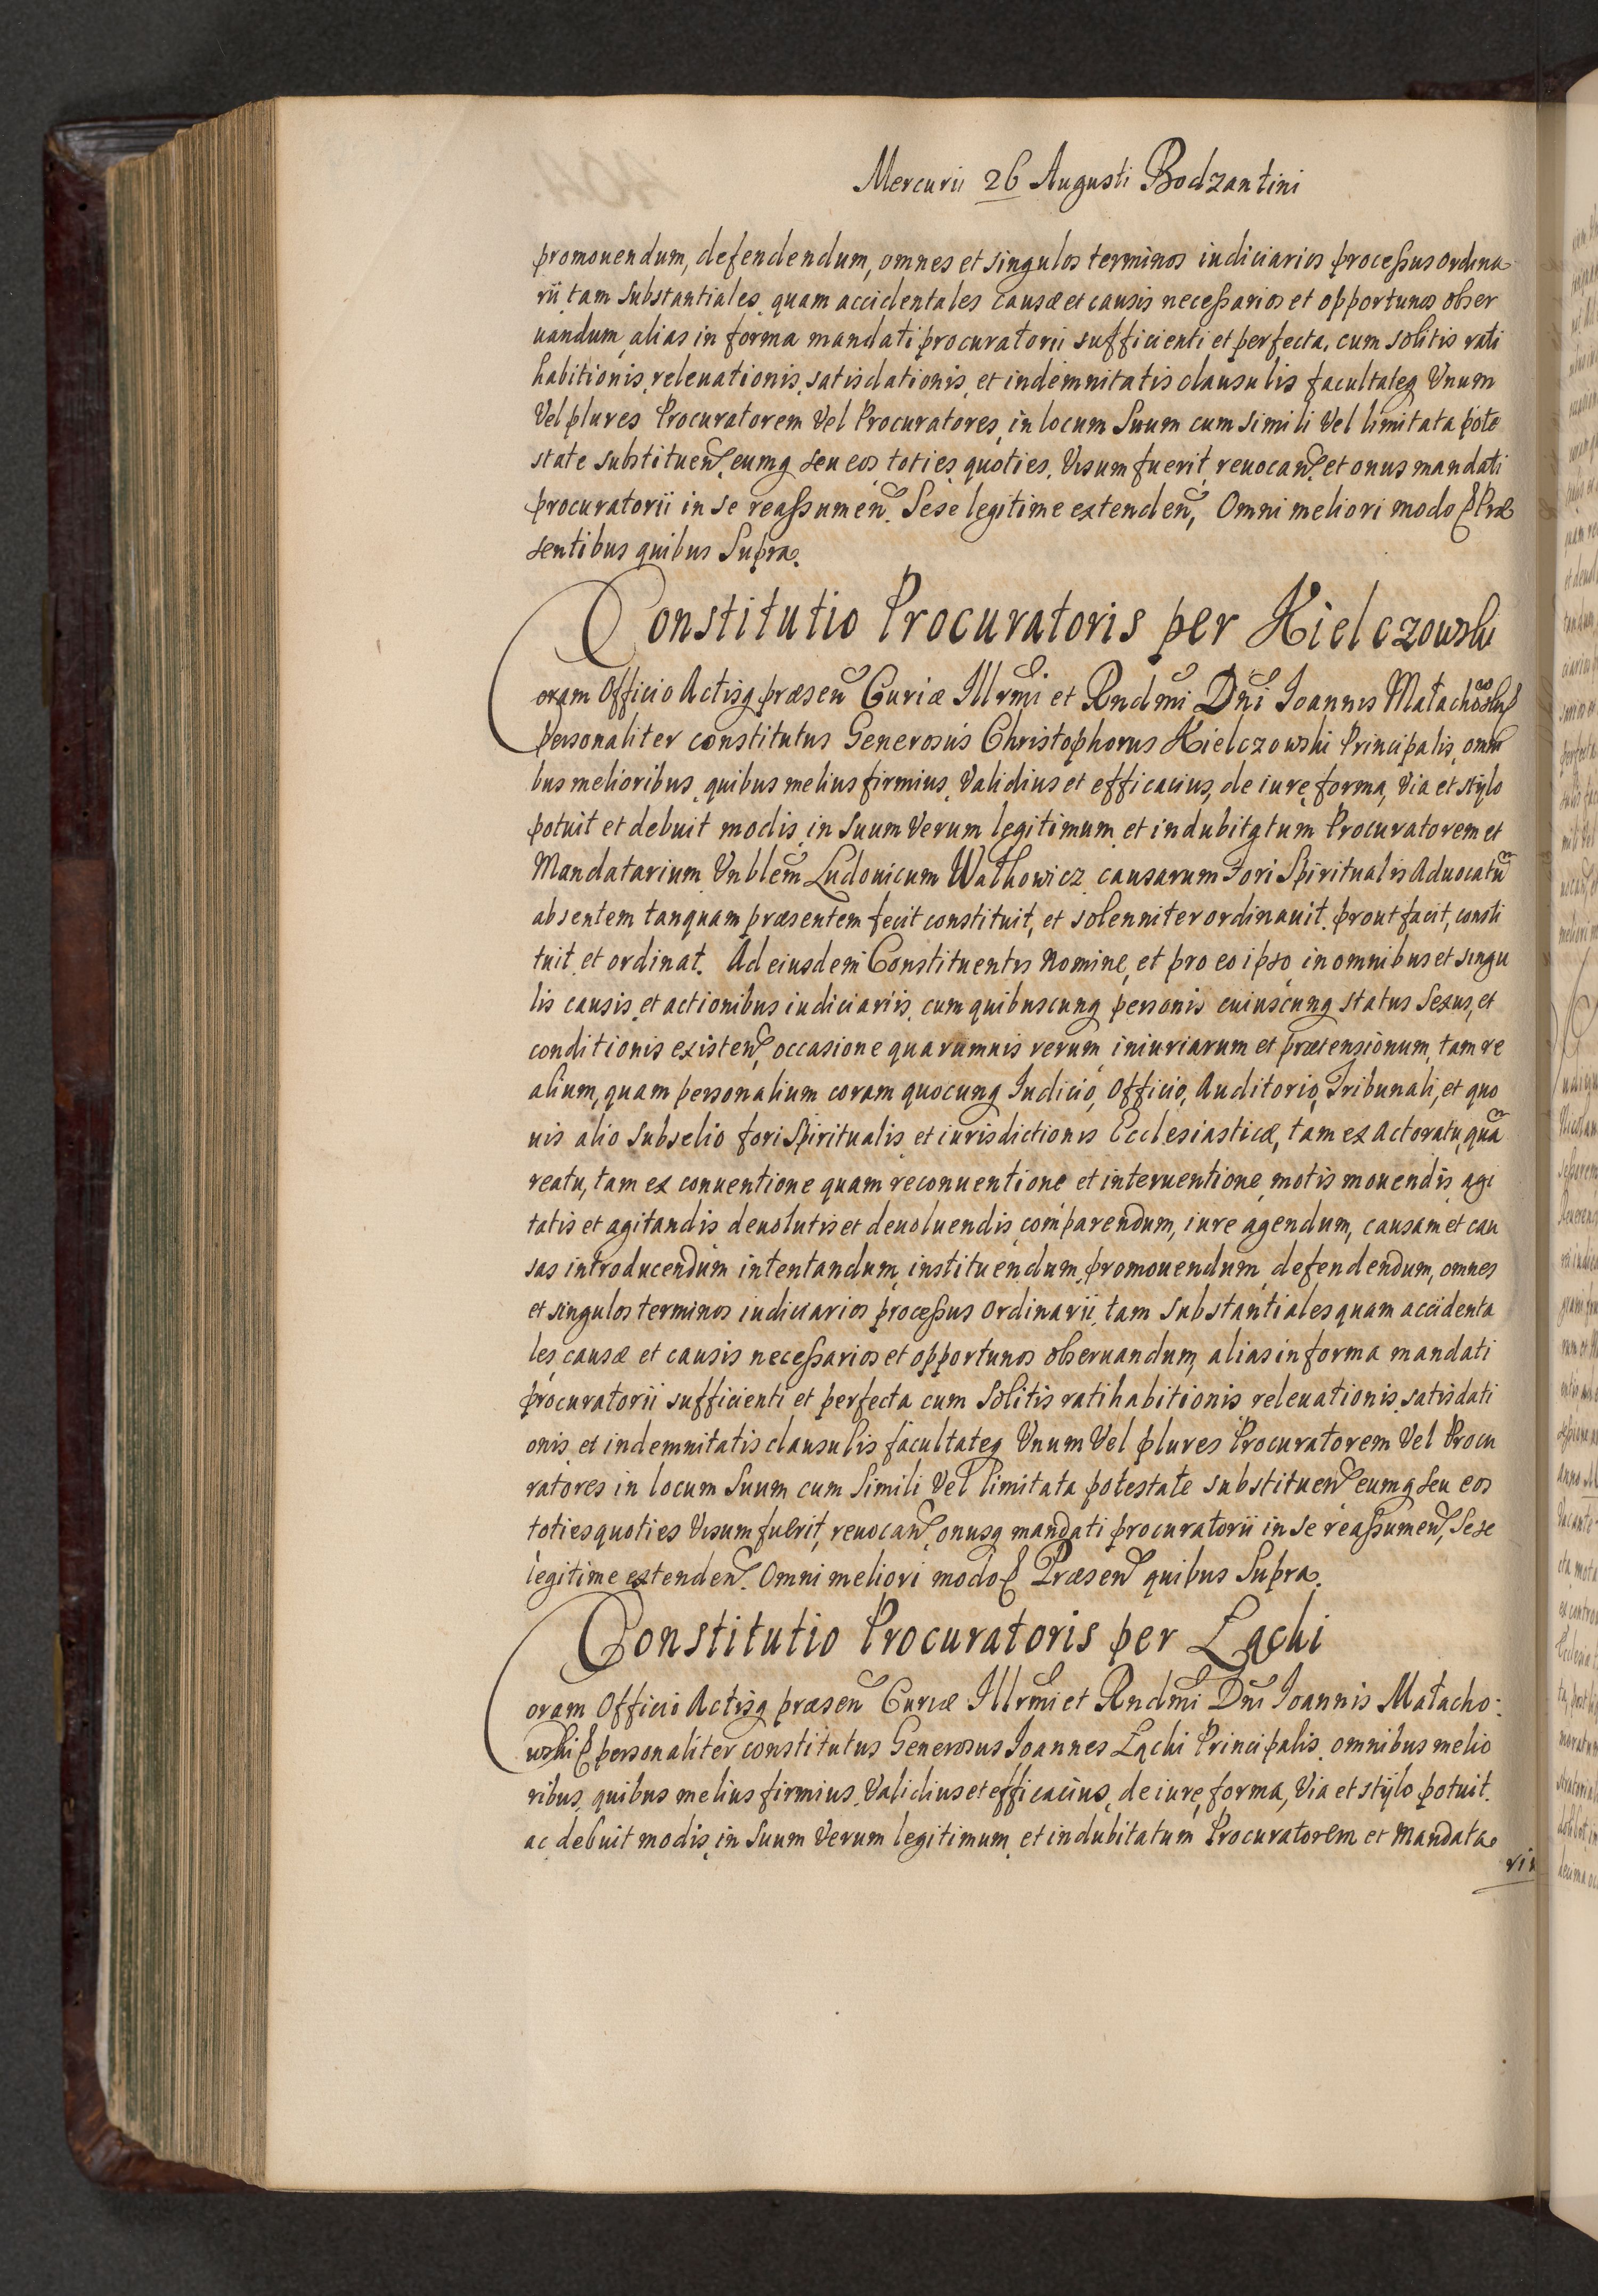 Mercurii 26 Augusti Bodzantini
promouendum, defendendum, omnes et singulos terminos iudiciarios processus ordina
rii tam substantiales quam accidentales causæ et causis necessarios et opportunos obser
uandum, alias in forma mandati procuratorii sufficienti et perfecta, cum solitis rati
habitionis, releuationis, satisdationis, et indemnitatis clausulis facultateq Vnum
Vel plures Procuratorem Vel Procuratores, in locum Suum cum simili Vel limitata pote
state substituen̄, eumq seu eos toties quoties, Visum fuerit, reuocan̄, et onus mandati
procuratorii in se reassumen̄. Sese legitime extenden̄, Omni meliori modo Præ
sentibus quibus Supra.
Constitutio Procuratoris per Kielczowski
oram Officio Actisq præsen̄ Curiæ Illrm̄i et Rndm̄i Dn̄i Ioannis Małachowski
personaliter constitutus Generosus Christophorus Kielczowski Principalis, omni
bus melioribus, quibus melius firmius, Validius et efficacius, de iure, forma, Via et stylo
potuit et debuit modis, in Suum Verum legitimum, et indubitatum Procuratorem et
Mandatarium Vnblem̄ Ludouicum Wałkowicz causarum Fori Spiritualis Aduocatū
absentem tanquam præsentem fecit constituit, et solenniter ordinauit, prout facit, consti
tuit, et ordinat. Ad eiusdem Constituentis Nomine, et pro eo ipso in omnibus et singu
lis causis, et actionibus iudiciariis, cum quibuscunq personis cuiuscunq status Sexus, et
conditionis existen̄, occasione quarumuis rerum iniuriarum et prætensionum, tam re
alium, quam personalium coram quocunq Iudicio, Officio, Auditorio, Tribunali, et quo
uis alio Subselio fori Spiritualis et iurisdictionis Ecclesiasticæ, tam ex Actoratu, quā
reatu, tam ex conuentione quam reconuentione et interuentione, motis mouendis, agi
tatis et agitandis deuolutis et deuoluendis, comparendum, iure agendum, causam et cau
sas introducendum intentandum, instituendum, promouendum, defendendum, omnes
et singulos terminos iudiciarios processus Ordinarii, tam Substantiales quam accidenta
les, causæ et causis necessarios et opportunos obseruandum, alias in forma mandati
procuratorii sufficienti et perfecta cum Solitis ratihabitionis releuationis, satisdati
onis, et indemnitatis clausulis facultateq Vnum Vel plures Procuratorem Vel Procu
ratores in locum Suum cum Simili Vel limitata potestate substituen̄ eumq Seu eos
toties quoties Visum fuerit, reuocan̄, onusq mandati procuratorii in se reassumen̄, Sese
legitime extenden̄. Omni meliori modo Præsen̄ quibus Supra.
Constitutio Procuratoris per Łącki
oram Officio Actisq præsen̄ Curiæ Illrm̄i et Rndm̄i Dn̄i Ioannis Małacho:
wski personaliter constitutus Generosus Ioannes Łącki Principalis, omnibus melio
ribus, quibus melius firmius, Validius et efficacius, de iure, forma, Via et stylo potuit.
ac debuit modis, in Suum Verum legitimum, et indubitatum Procuratorem et Mandata